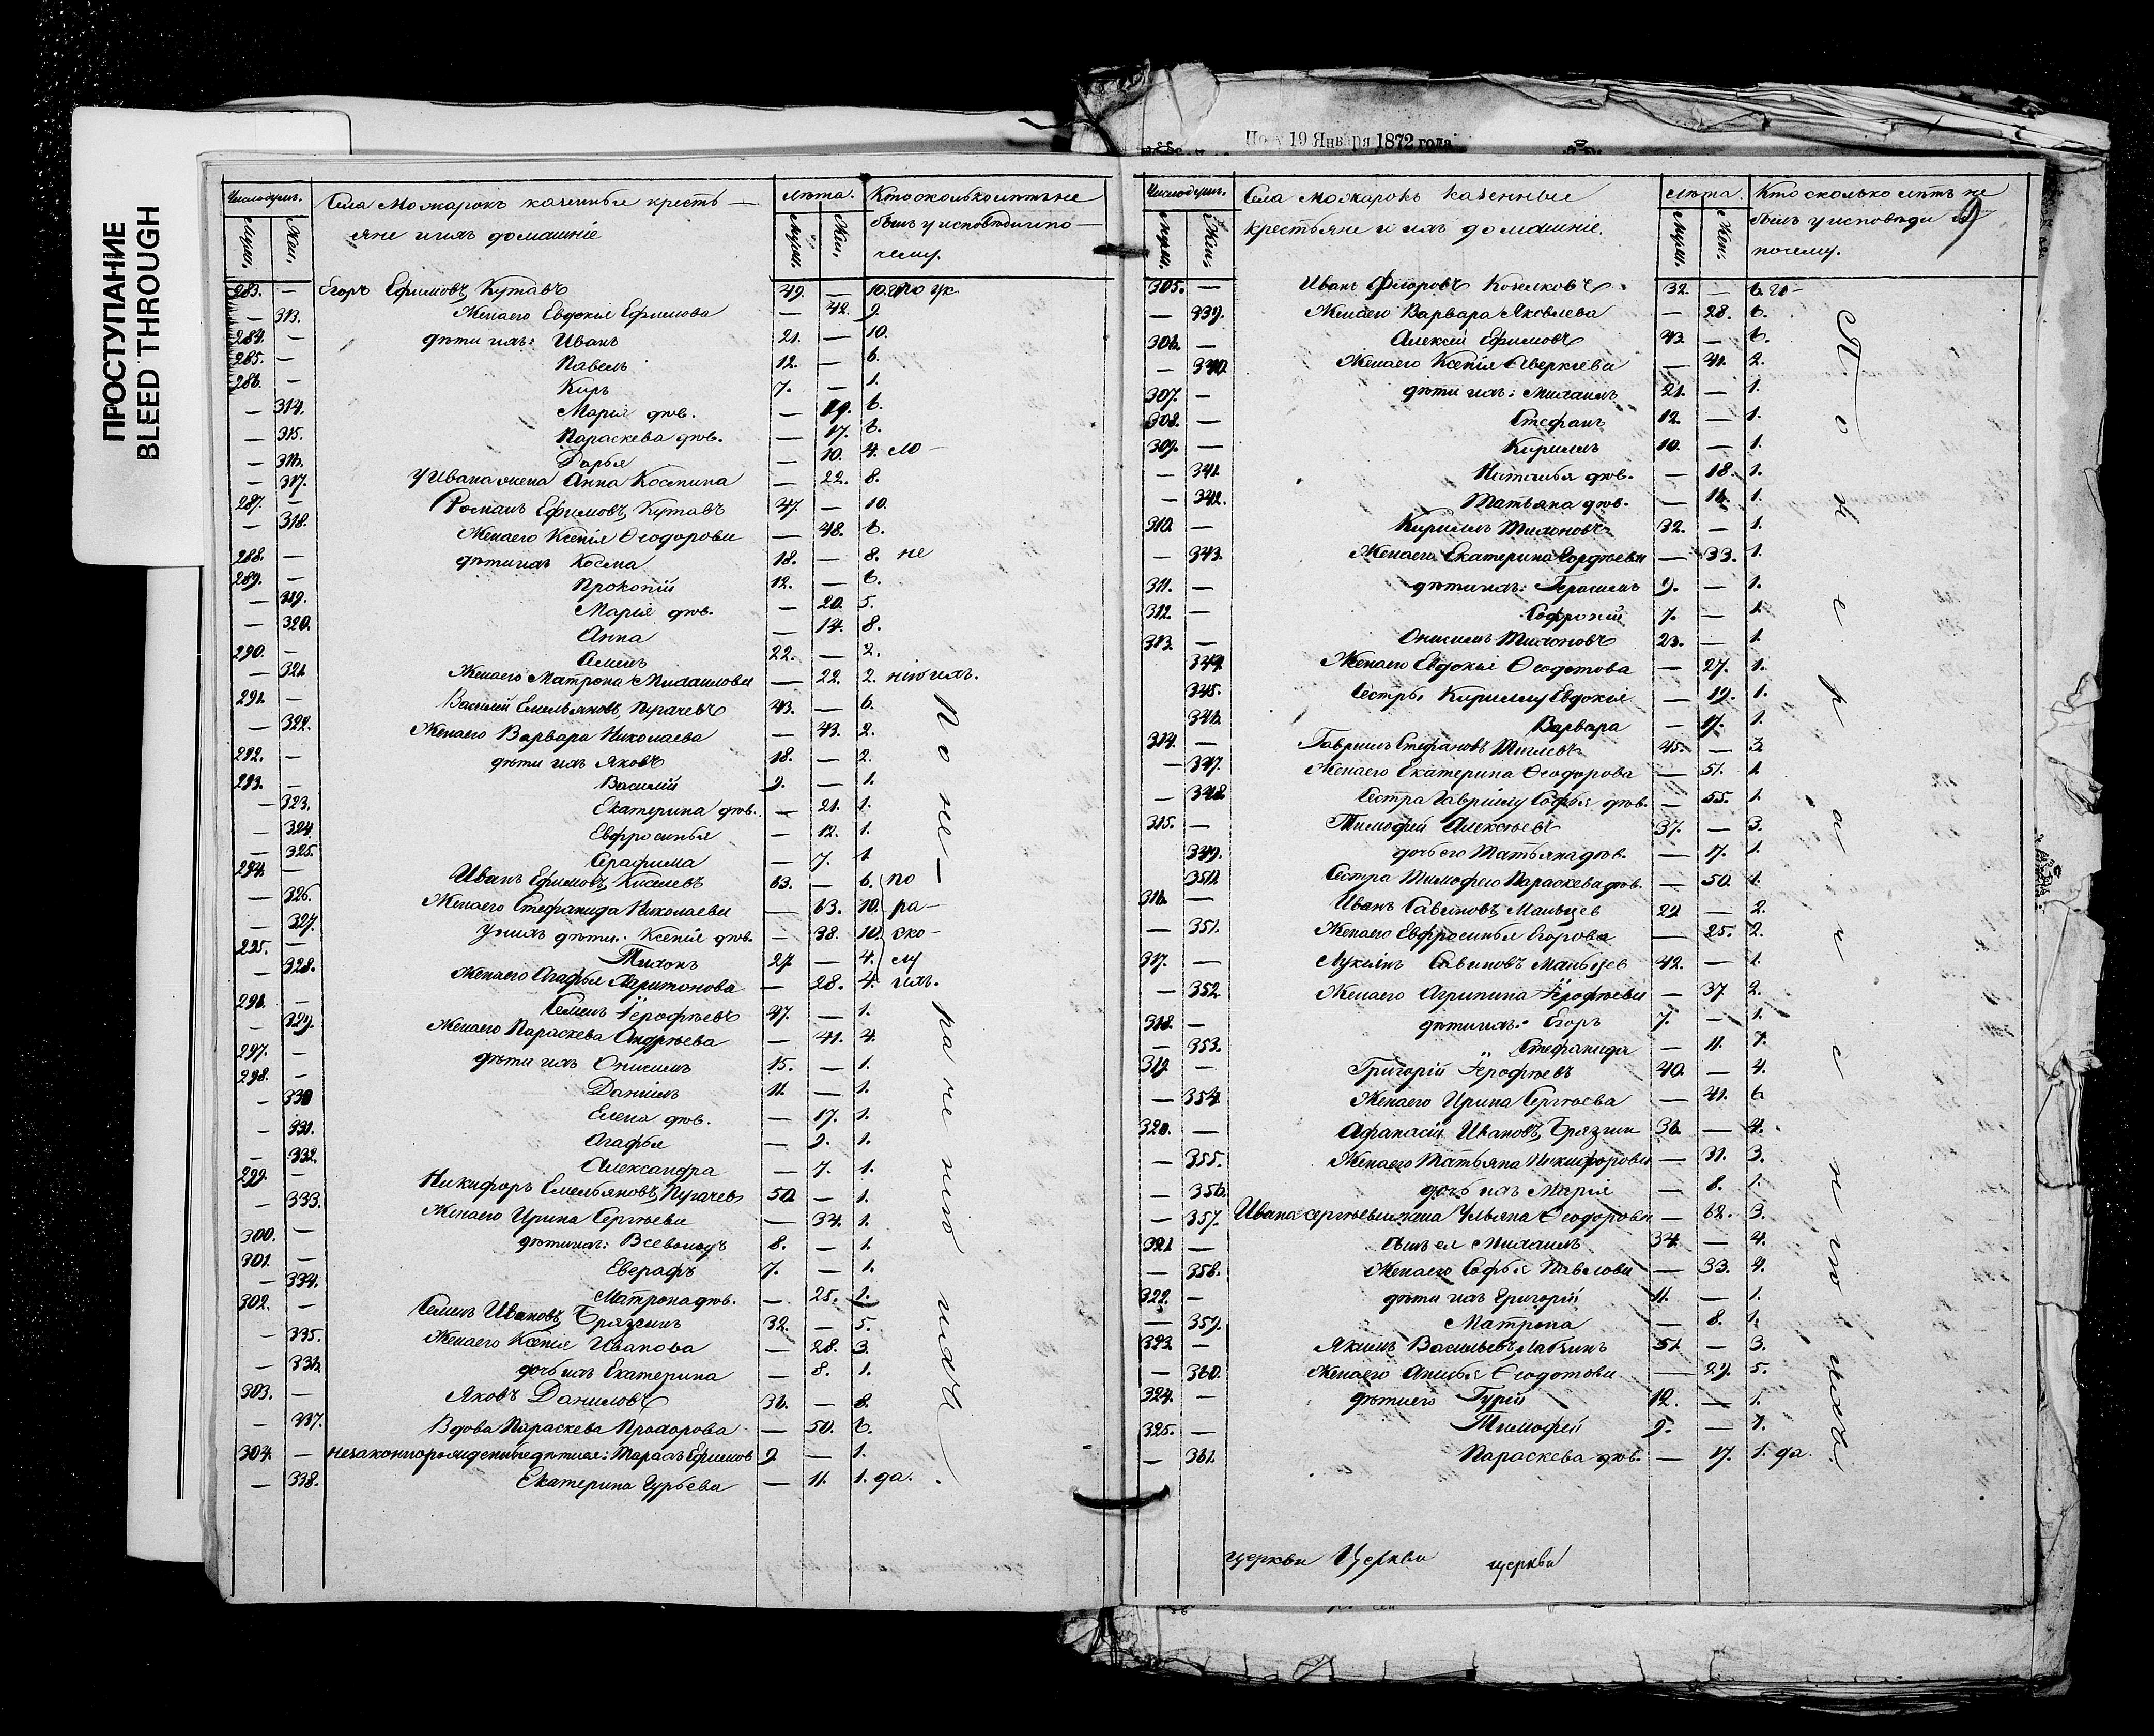 ПРОСТУПАНИЕ
BLEED THROUGH
19 Января 1872 года
Число душъ. Села Можарокъ казенныя кресть- лѣта. Кто сколько лѣтъ не
Муж. Жен. яне и ихъ домашніе Муж. Жен. былъ у исповѣди и по-
чему.
283. — Егоръ Ефимовъ Кутавъ 49. — 10.
— 313. Жена его Евдокія Ефимова — 42. 9.
284. — дѣти ихъ: Иванъ 21. — 10.
285. — Павелъ 12. — 6.
286. — Киръ 7. — 1.
— 314. Марія дѣв. — 19. 6.
— 315. Параскева дѣв. — 17. 6.
— 316. Дарья — 10. 4.
— 317. У Ивана жена Анна Космина — 22. 8.
287. — Романъ Ефимовъ Кутавъ 47. — 10.
— 318. Жена его Ксенія Ѳеодорова — 48. 6.
288. — дѣти ихъ Косма 18. — 8. не
289. — Прокопій 12. — 6.
— 319. Марія дѣв. — 20. 5.
— 320. Анна — 14. 8.
290. — 22. — 2.
— 321. Жена его Матрона Михаилова — 22. 2. нію ихъ.
291. — Василій Емельяновъ Пугачевъ 43. — 6.
— 322. Жена его Варвара Николаева — 43. 2.
292. — дѣти ихъ Яковъ 18. — 2.
293. — Василій 9. — 1.
— 323. Екатерина дѣв. — 21. 1.
— 324. Евфросинья — 12. 1.
— 325. Серафима — 7. 1.
294. — Иванъ Ефимовъ Киселевъ 63. — 6. по
— 326. Жена его Стефанида Николаева — 63. 10. ра-
— 327. У нихъ дѣти: Ксенія дѣв. — 38. 10. ско-
295. — Тихонъ 27. — 4. лу
— 328. Жена его Агафья Харитонова — 28. 4. ихъ.
296. — Семенъ Іерофѣевъ 47. — 1.
— 329. Жена его Параскева Андрѣева — 41. 4.
297. — дѣти ихъ Онисимъ 15. — 1.
298. — Даніилъ 11. — 1.
— 330. Елена дѣв. — 17. 1.
— 331. Агафья — 9. 1.
— 332. Александра — 7. 1.
299. — Никифоръ Емельяновъ Пугачевъ 50. — 1.
— 333. Жена его Ирина Сергѣева — 34. 1.
300. — дѣти ихъ: Всеволодъ 8. — 1.
301. — Еверафъ 7. — 1.
— 334. Матрона дѣв. — 25. 1.
302. — Семенъ Ивановъ Брязгинъ 32. — 5.
— 335. Жена его Ксенія Иванова — 28. 3.
— 336. дочь ихъ Екатерина — 8. 1.
303. — Яковъ Даниловъ 36. — 8.
— 337. Вдова Параскева Прохорова — 50. 6.
304. — незаконнорожденные дѣти ея: Тарасъ Ефимовъ 9. — 1.
— 338. Екатерина Гурьева — 11. 1. да.
По не-
радѣнію ихъ.
Число душъ. Села Можарокъ казенные лѣта. Кто сколько лѣтъ не
Муж. Жен. крестьяне и ихъ домашніе. Муж. Жен. былъ у исповѣди и
почему.
305. — Иванъ Флоровъ 32. — 6.
— 339. Жена его Варвара Яковлева — 28. 6.
306. — Алексій Ефимовъ 43. — 6.
— 340. Жена его Ксенія Аверкіева — 41. 2.
307. — дѣти ихъ: Михаилъ 21. — 1.
308. — Стефанъ 12. — 1.
309. — Кириллъ 10. — 1.
— 341. Наталья дѣв. — 18. 1.
— 342. Татьяна дѣв. — 1.
310. — Кириллъ Тихоновъ 32. — 1.
— 343. Жена его Екатерина Гордѣева — 33. 1.
311. — дѣти ихъ: Герасимъ 9. — 1.
312. — Софроній 7. — 1.
313. — Онисимъ Тихоновъ 23. — 1.
344. Жена его Евдокія Ѳеодотова — 27. 1.
345. Сестры Кириллу Евдокія — 19. 1.
346. Варвара — 17. 1.
314. — Гавріилъ Стефановъ 45. — 3.
— 347. Жена его Екатерина Ѳеодорова — 51. 1.
— 348. Сестра Гавріилу Софья дѣв. — 55. 1.
315. — Тимофей Алексѣевъ 37. — 3.
349. дочь его Татьяна дѣв. — 17. 1.
350. Сестра Тимофею Параскева дѣв. — 50. 1.
316. — Иванъ Савиновъ Мальцев 29. — 2.
— 351. Жена его Евфросинья Егорова — 25. 2.
317. — Лукіянъ Савиновъ Мальцев 42. — 1.
— 352. Жена его Агрипина Іерофѣева — 37. 2.
318. — дѣти ихъ: Егоръ 7. — 1.
— 353. Стефанида — 11. 1.
319. — Григорій Іерофѣевъ 40. — 4.
— 354. Жена его Ирина Сергѣева — 41. 6
320. — Афанасій Ивановъ Брязгин 36. — 4.
— 355. Жена его Татьяна Никифорова — 31. 3.
— 356. дочь ихъ Марія — 8. 1.
— 357. Ивана Сергѣева жена Ульяна Ѳеодорова — 62. 3.
321. — сынъ ея Михаилъ 34. — 4.
— 358. Жена его Софья Павлова — 33. 4.
322. — дѣти ихъ Григорій 11. — 1.
— 359. Матрона — 8. 1.
323. — Якимъ Васильевъ 51. — 3.
— 360. Жена его Ѳеодотова — 29. 5.
324. — дѣти его Гурій 12. — 1.
325. — Тимофей 9. — 1.
— 361. Параскева дѣв. — 17. 1. да
церкви Церкви церкви